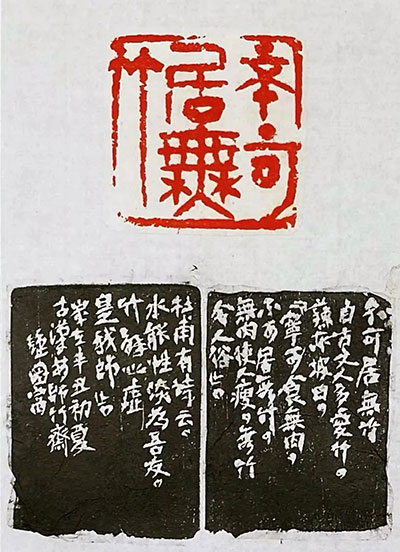 不可
居無
竹
不可居無竹
自古文人多愛竹。
蘇東坡曰。
「寧可食無肉。
不可居無竹。
無肉使人瘦。無竹
令人俗」句。
杜甫有詩云。
水能性淡為吾友。
竹解心虛
是我師」句
歲在辛丑初夏
古漢安師竹齋